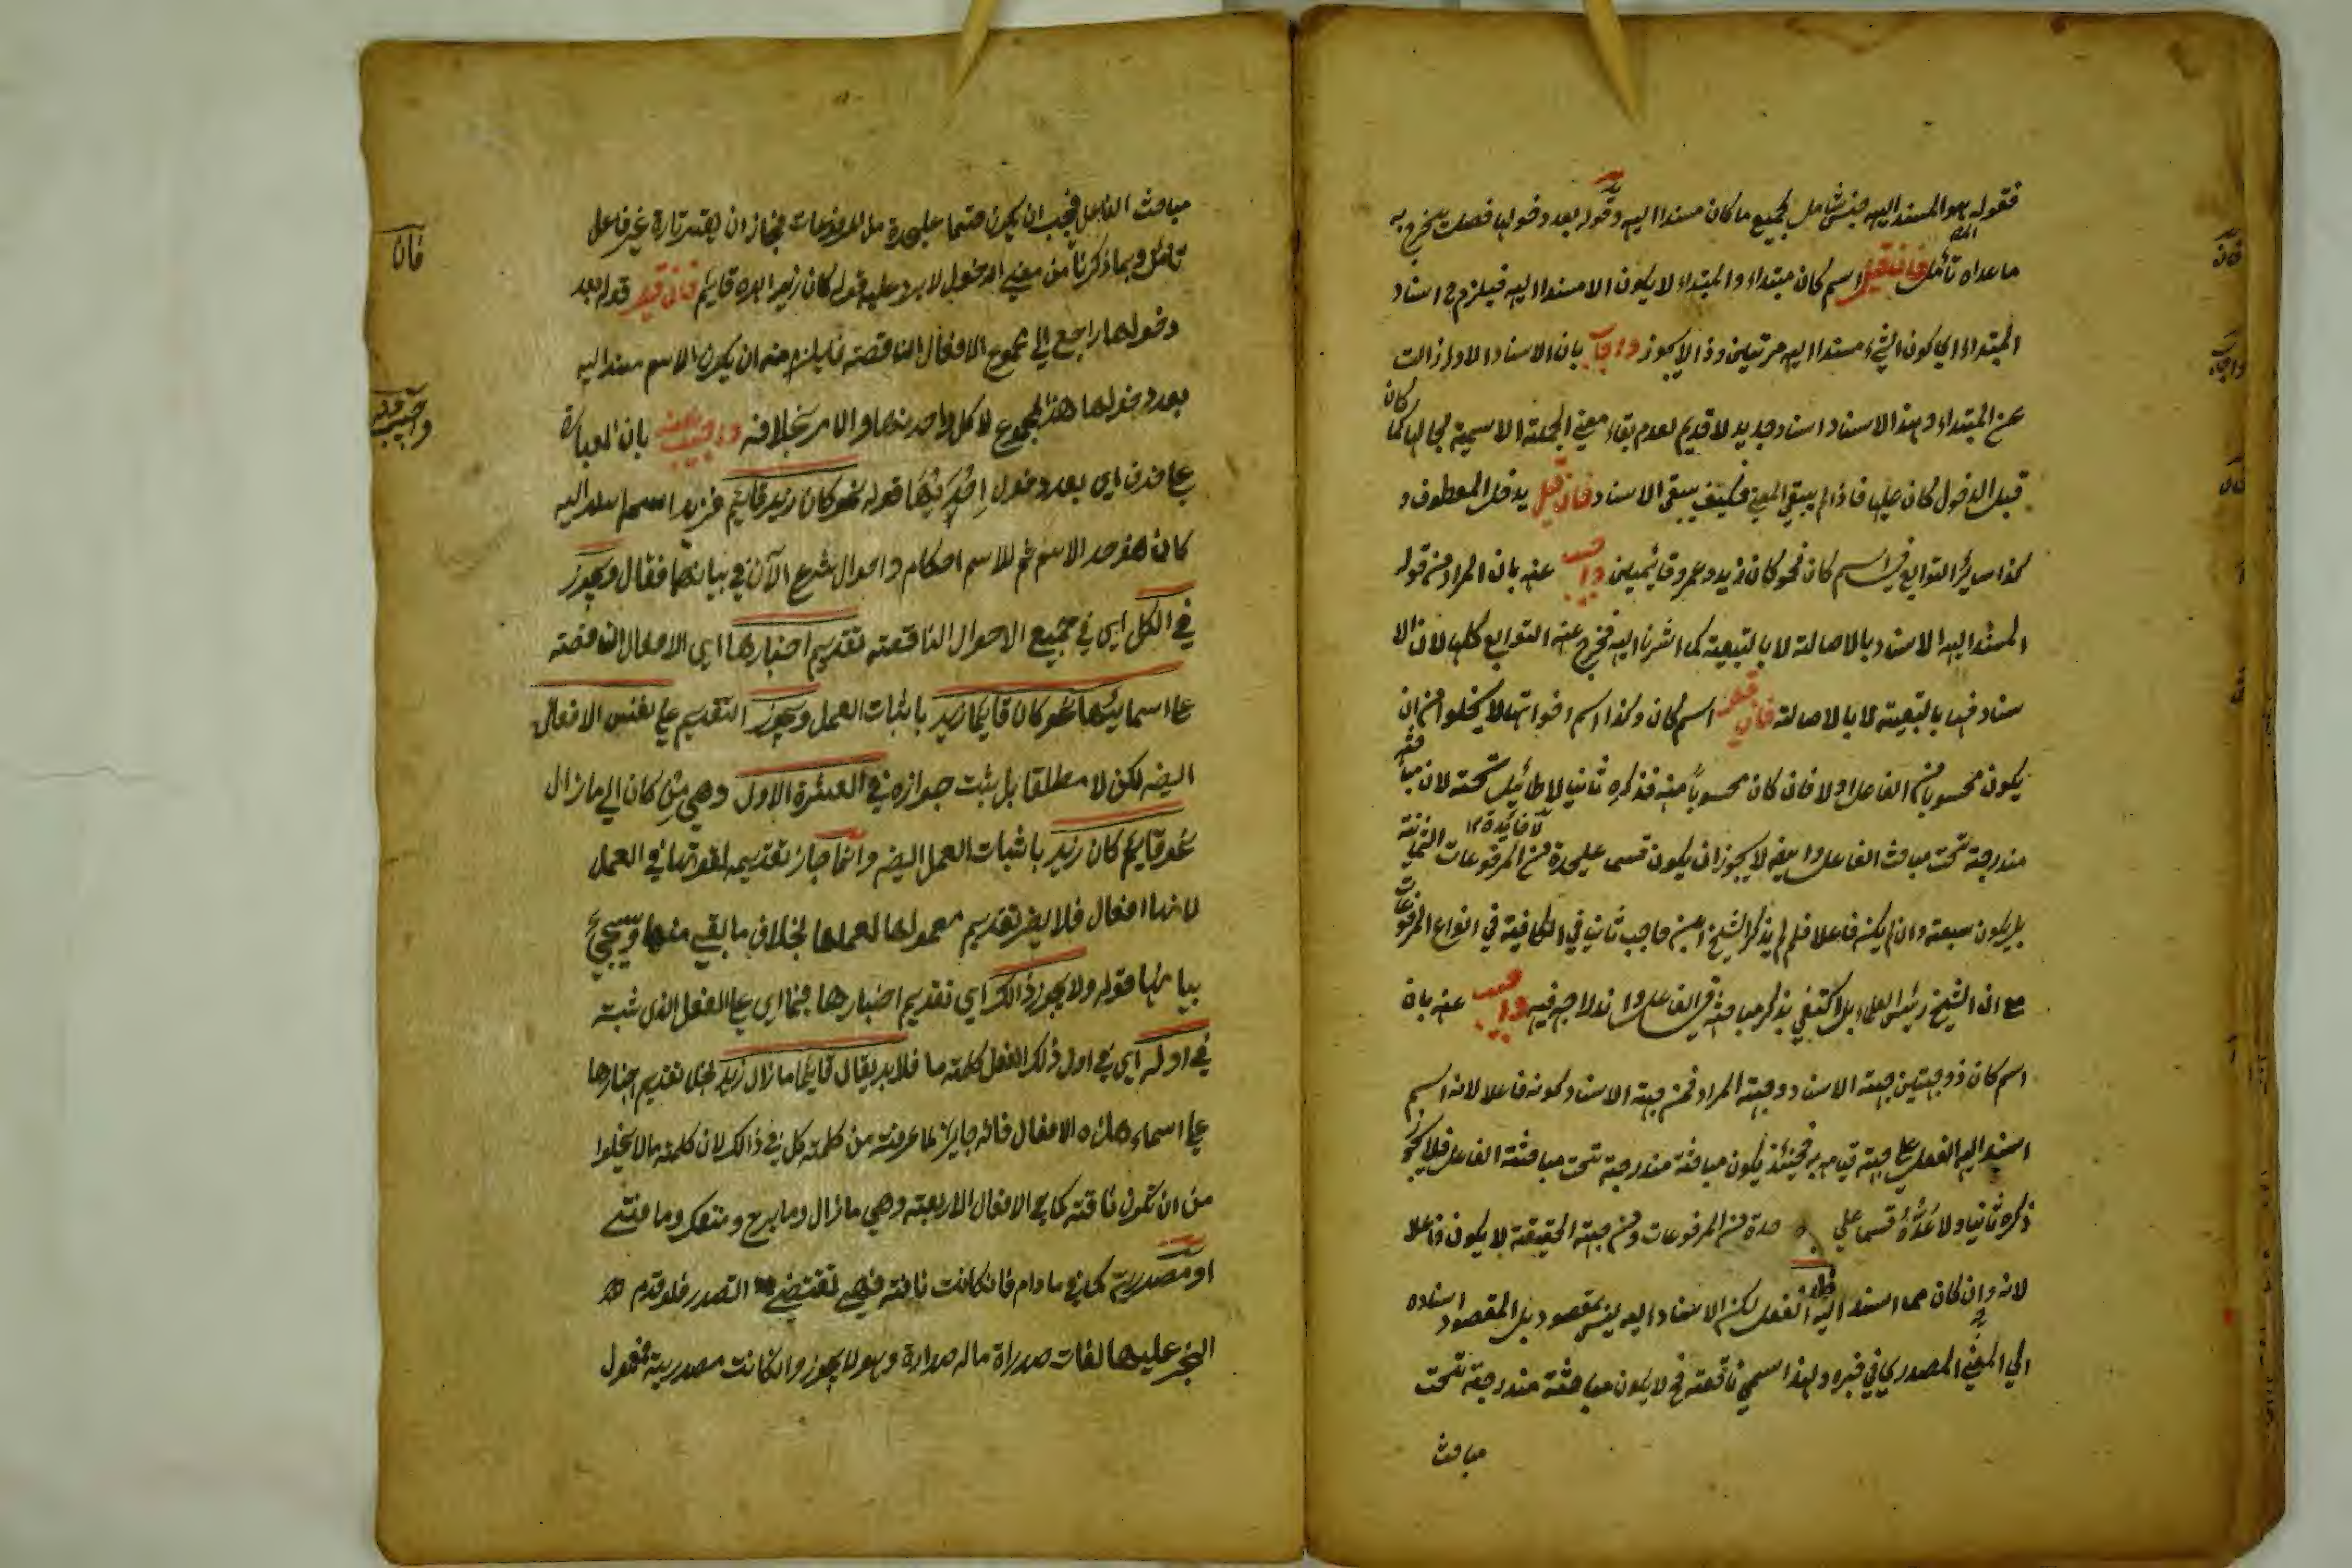 فقوله هو المسند اليه جنس شامل لجميع ما كان مسندا اليه وقوله بعد دخولها فصلت يخرج به
ما عداه تأمل فان قيل اسم كان مبتداء والمبتداء لا يكون الا مسندا اليه فيلزم ح اسناد
المبتداء اي كون الشيء مسندا اليه مرتين وذا لا يجوز واجاب بان الاسناد الاول زالت
عن المبتداء وهذا الاسناد اسناد جديد لا قديم لعدم بقاء معني الجملة الاسمية بحالها كما كان
قبل الدخول كان عليها فاذا لم يبقي المعني فكيف يبقي الاسناد فان قيل يدخل المعطوف و
كذا سائر التوابع في اسم كان نحو كان زيد وعمرو قائمين واجيب عنه بان المراد من قوله
المسند اليه الاسناد بالاصالة لا بالتبعية كما اشرنا اليه فخرج عنه التوابع كلها لان الا
سناد فيها بالتبعية لا بالاصالة فان قيل اسم كان وكذا اسم اخواتها لا يخلوا من ان
يكون محسوبا من الفاعل اولا فان كان محسوبا منه فذكره ثانيا لا طائيل تحته لان مباحثه
لا فائدة ١٢
مندرجة تحت مباحث الفاعل وايضه لا يجوز ان يكون قسمى عليحدة من المرفوعات الثمانية
بل يكون سبعة وان لم يكن فاعلا فلم لم يذكر الشيخ ابن حاجب ثاني في الكافية في انواع المرفوعات
مع ان الشيخ رئيس العلماء بل اكتفي بذكر مباحثه في الفاعل وا ندراجه فيه واجيب عنه بان
اسم كان ذو جهتين جهة الاسناد وجهة المراد فمن جهة الاسناد كونه فاعلا لانه اسم
اسند اليه الفعل علي جهة قيامه به فحينئذ يكون مباحثة مندرجة تحت مباحثة الفاعل فلا يجوز
ذكره ثانيا ولا عدّه قسما علي حدة من المرفوعات ومن جهة الحقيقة لا يكون فاعلا
لانه وان كان مما اسند اليه الفعل لكن الاسناد اليه ليس بمقصود بل المقصود اسناده
الي المعني المصدري في خبره ولهذا سمي ناقصة فح لا يكون مباحثة مندرجة تحت
مباحث
مباحث الفاعل فيجب ان يكون قسما عليحدة من المرفوعات فجاز ان يعتبر تارة غير فاعل
تامل وبما ذكرنا من معني الدخول لا يرد عليه قوله كان زيد ابوه قايم فان قيل قوله بعد
دخولها راجع الي مجموع الافعال الناقصة فيلزم منه ان يكون الاسم مسند اليه
بعد دخولها هذا المجموع لا كل واحد منها والامر بخلافه واجيب عنه بان العبارة
علي حذف اي بعد دخول احديٰها قوله نحو كان زيد قايم فزيد اسم اسند اليه
كان هو حد الاسم ثم للاسم احكام واحوال شرع الآن في بيانها فقال ويجوز
في الكل اي في جميع الاحوال الناقصة تقديم اخبارها اي الافعال الناقصة
علي اسمائها نحو كان قايما زيد باثبات العمل ويجوز التقديم علي نفس الافعال
ايضه لكن لا مطلقا بل يثبت جوازه في العشرة الاول وهي من كان الي ما زال
نحو قايم كان زيد باثبات العمل ايضه وانما جاز تقديمه لقوتها في العمل
لانها افعال فلا يضر تقديم معمولها لعملها بخلاف ما بقي منها وسيجيء
بيانها قوله ولا يجوز ذالك اي تقديم اخبارها فيما اي علي الفعل الذي ثبت
في اوله اي في اول ذلك الفعل كلمة ما فلا بد يقال قايما ما زال زيد بخلاف تقديم اخبارها
علي اسماء هذه الافعال فانه جايز لما عرفت من كلمة كل في ذالك لان كلمة ما لا يخلوا
من ان تكون نافة كما في الافعال الاربعة وهي ما زال وما برح وما نفك وما فتئ
او مصدرية كما في ما دام فان كانت نافة فهي تقتضي التصدر فلو قدم
الخبر عليها لفات صدراة ماله صدارة وهو لا يجوز وان كانت مصدرية فمعمول
فان
واجيب عنه
فان
واجاب